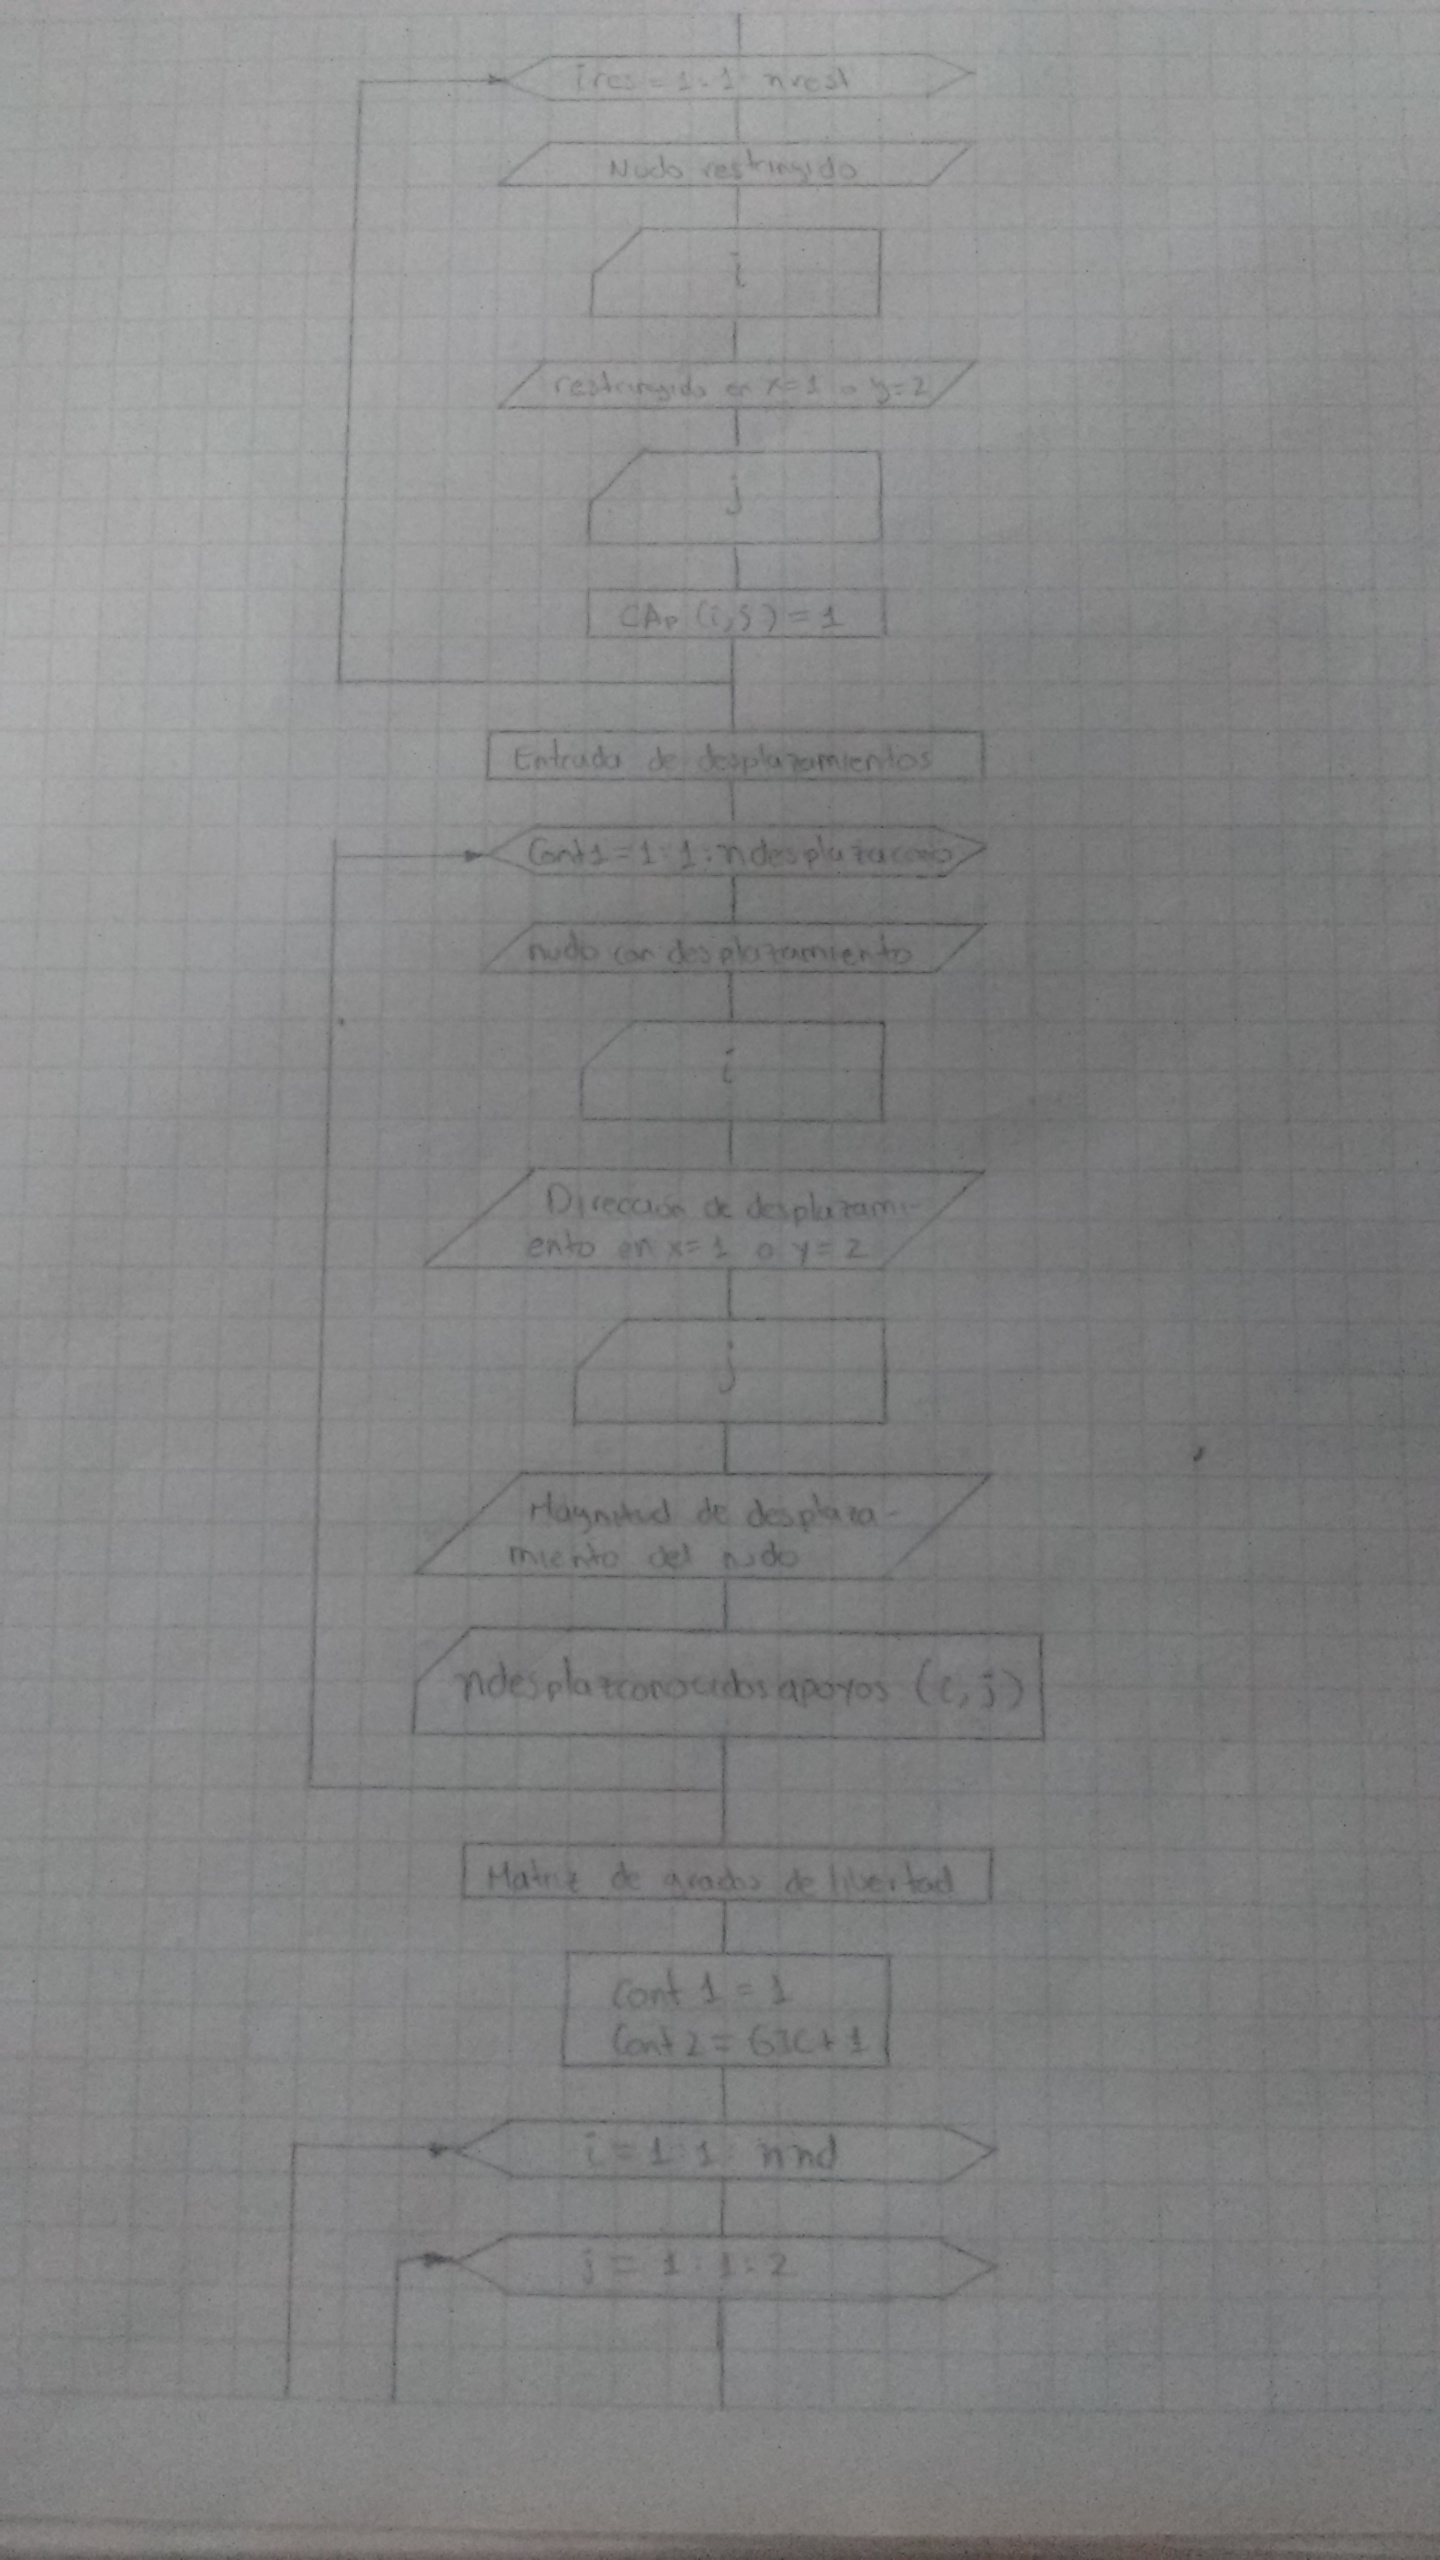 ires = 1 : 1 : nrest
Nudo restringido
i
restringido en x=1 o y=2
j
CAp (i,j) = 1
Entrada de desplazamientos
Cont1 = 1 : 1 : ndesplazacono
nudo con desplazamiento
i
Dirección de desplazami-
ento en x=1 o y=2
j
Magnitud de desplaza-
miento del nudo
ndesplazconocidosapoyos (i,j)
Matriz de grados de libertad
Cont 1 = 1
Cont 2 = GIC+1
i = 1 : 1 : nnd
j = 1 : 1 : 2